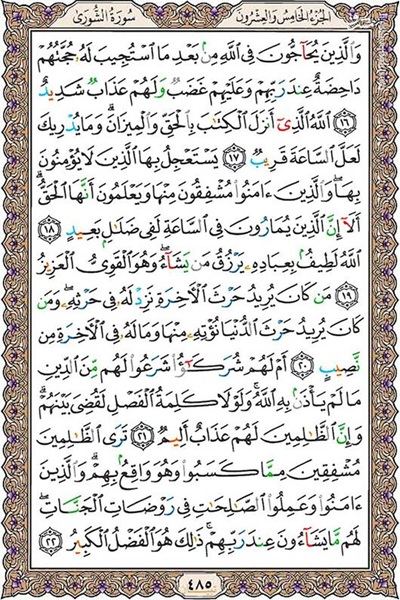 الجزء الخامس والعشرون سورة الشورى
وَٱلَّذِينَ يُحَآجُّونَ فِى ٱللَّهِ مِنۢ بَعۡدِ مَا ٱسۡتُجِيبَ لَهُۥ حُجَّتُهُمۡ
دَاحِضَةٌ عِندَ رَبِّهِمۡ وَعَلَيۡهِمۡ غَضَبٌ وَلَهُمۡ عَذَابٌ شَدِيدٌ
﴿١٦﴾ ٱللَّهُ ٱلَّذِىٓ أَنزَلَ ٱلۡكِتَٰبَ بِٱلۡحَقِّ وَٱلۡمِيزَانَۗ وَمَا يُدۡرِيكَ
لَعَلَّ ٱلسَّاعَةَ قَرِيبٌ ﴿١٧﴾ يَسۡتَعۡجِلُ بِهَا ٱلَّذِينَ لَا يُؤۡمِنُونَ
بِهَاۖ وَٱلَّذِينَ ءَامَنُوا۟ مُشۡفِقُونَ مِنۡهَا وَيَعۡلَمُونَ أَنَّهَا ٱلۡحَقُّۗ
أَلَآ إِنَّ ٱلَّذِينَ يُمَارُونَ فِى ٱلسَّاعَةِ لَفِى ضَلَٰلٍۭ بَعِيدٍ ﴿١٨﴾
ٱللَّهُ لَطِيفٌۢ بِعِبَادِهِۦ يَرۡزُقُ مَن يَشَآءُۖ وَهُوَ ٱلۡقَوِىُّ ٱلۡعَزِيزُ
﴿١٩﴾ مَن كَانَ يُرِيدُ حَرۡثَ ٱلۡأٓخِرَةِ نَزِدۡ لَهُۥ فِى حَرۡثِهِۦۖ وَمَن
كَانَ يُرِيدُ حَرۡثَ ٱلدُّنۡيَا نُؤۡتِهِۦ مِنۡهَا وَمَا لَهُۥ فِى ٱلۡأٓخِرَةِ مِن
نَّصِيبٍ ﴿٢٠﴾ أَمۡ لَهُمۡ شُرَكَٰٓؤُا۟ شَرَعُوا۟ لَهُم مِّنَ ٱلدِّينِ
مَا لَمۡ يَأۡذَنۢ بِهِ ٱللَّهُۚ وَلَوۡلَا كَلِمَةُ ٱلۡفَصۡلِ لَقُضِىَ بَيۡنَهُمۡۗ
وَإِنَّ ٱلظَّٰلِمِينَ لَهُمۡ عَذَابٌ أَلِيمٌ ﴿٢١﴾ تَرَى ٱلظَّٰلِمِينَ
مُشۡفِقِينَ مِمَّا كَسَبُوا۟ وَهُوَ وَاقِعٌۢ بِهِمۡۗ وَٱلَّذِينَ
ءَامَنُوا۟ وَعَمِلُوا۟ ٱلصَّٰلِحَٰتِ فِى رَوۡضَاتِ ٱلۡجَنَّاتِۖ
لَهُم مَّا يَشَآءُونَ عِندَ رَبِّهِمۡۚ ذَٰلِكَ هُوَ ٱلۡفَضۡلُ ٱلۡكَبِيرُ ﴿٢٢﴾
٤٨٥